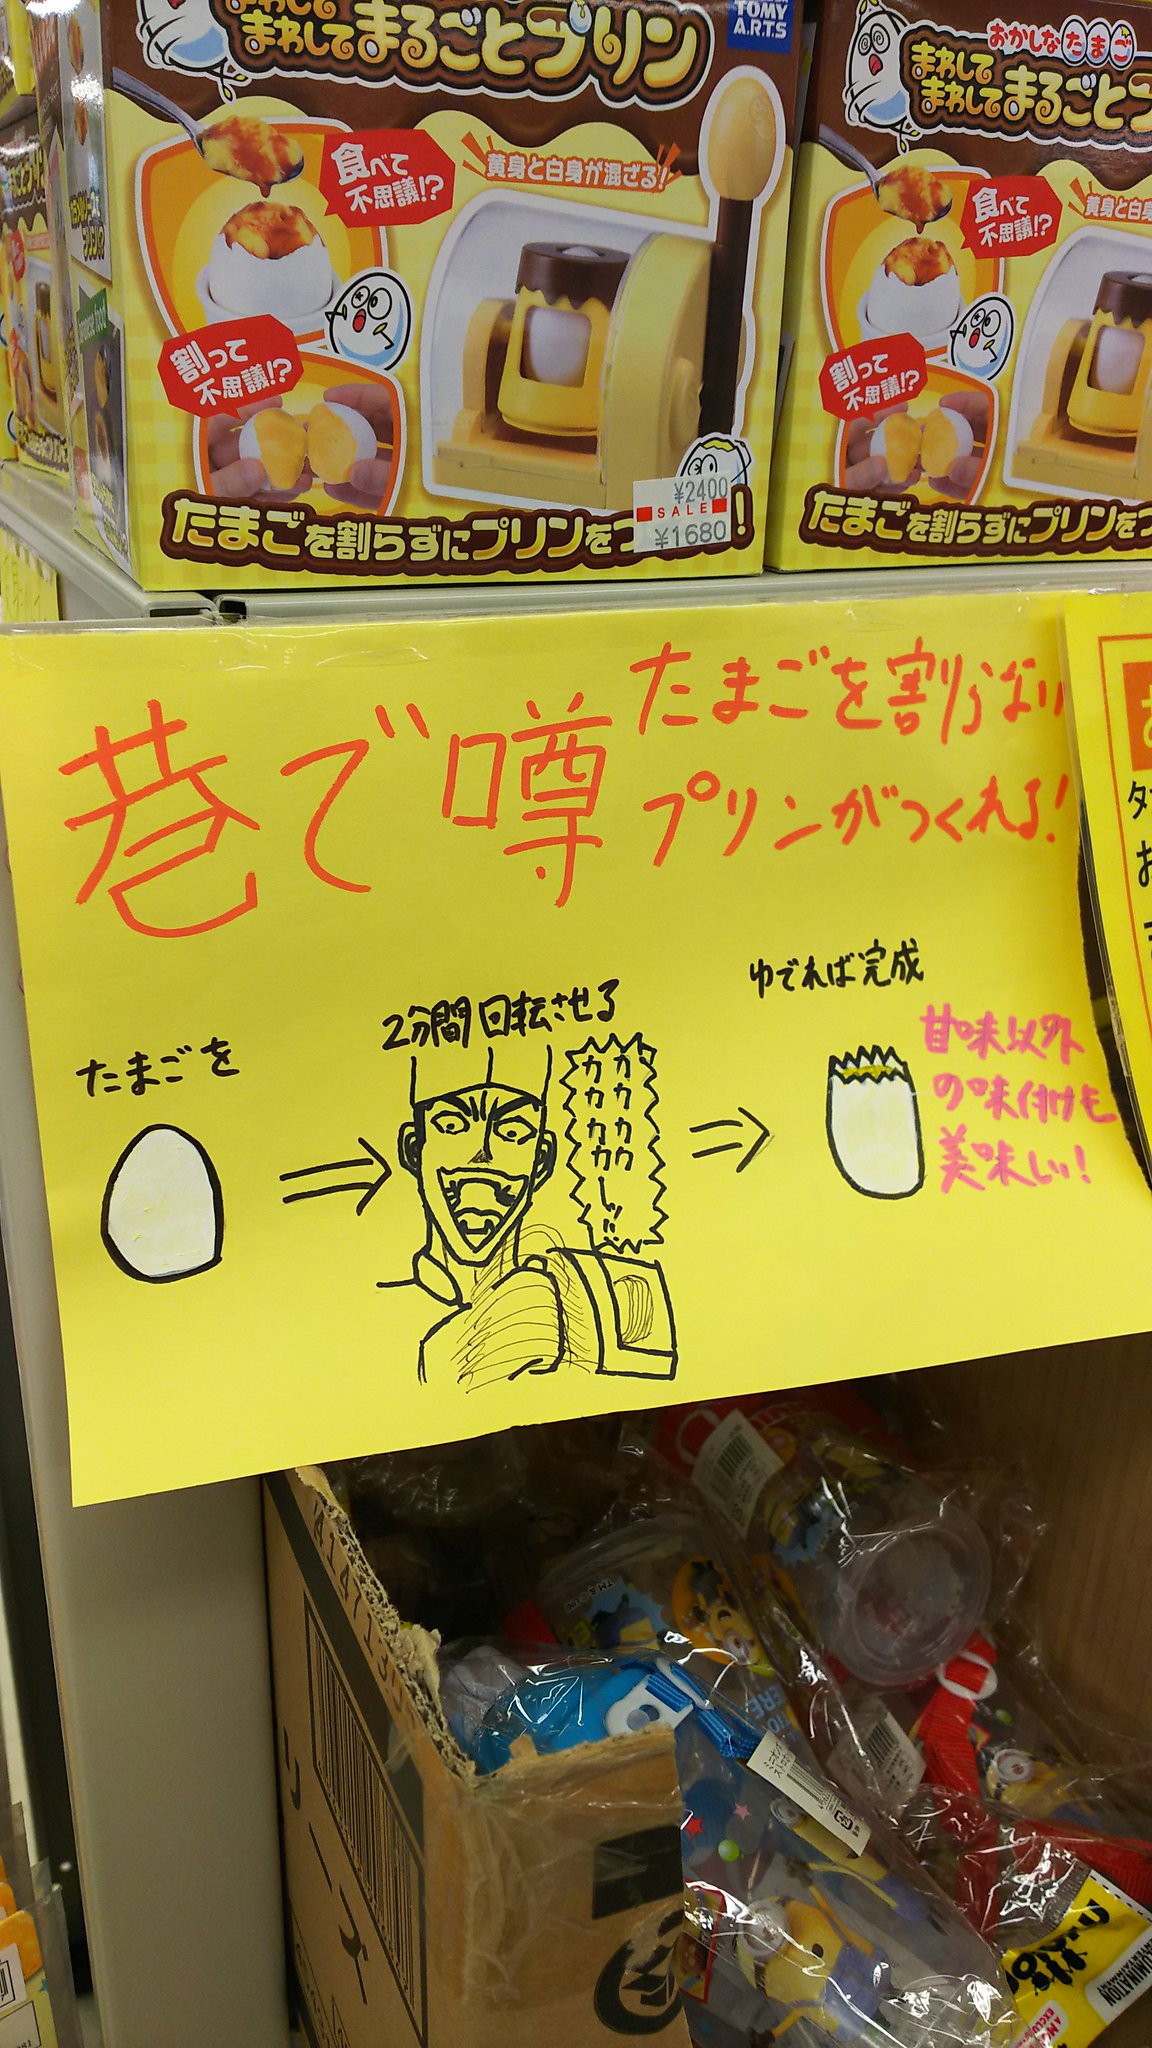 まわして
まわしてまるごとプリン
TOMY
A.R.T.S
食べて
不思議!?
黄身と白身が混ざる!
割って
不思議!?
¥2400
SALE
¥1680
たまごを割らずにプリンをつ
おかしなたまご
まわして
まわしてまるごとプ
食べて
不思議!?
黄身と白身
割って
不思議!?
たまごを割らずにプリンをつ
巷で噂
たまごを割らない
プリンがつくれる!
たまごを
2分間回転させる
カカカカカ
カカカカカーッ!!
ゆでれば完成
甘味以外
の味付けも
美味しい!
ILLUMINATION